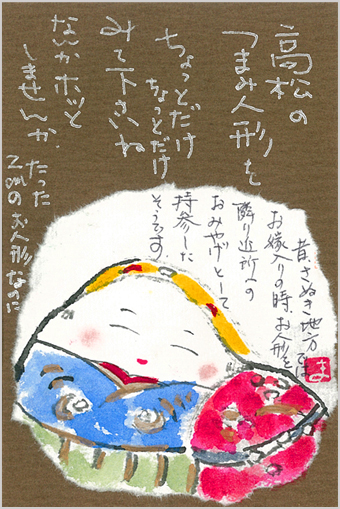 高松の
つまみ人形を
ちょっとだけ
ちょっとだけ
みて下さいね
なんかホッと
しませんか
たった
2cmのお人形なのに
昔、さぬき地方では
お嫁入りの時、お人形を
隣り近所への
おみやげとして
持参した
そうです